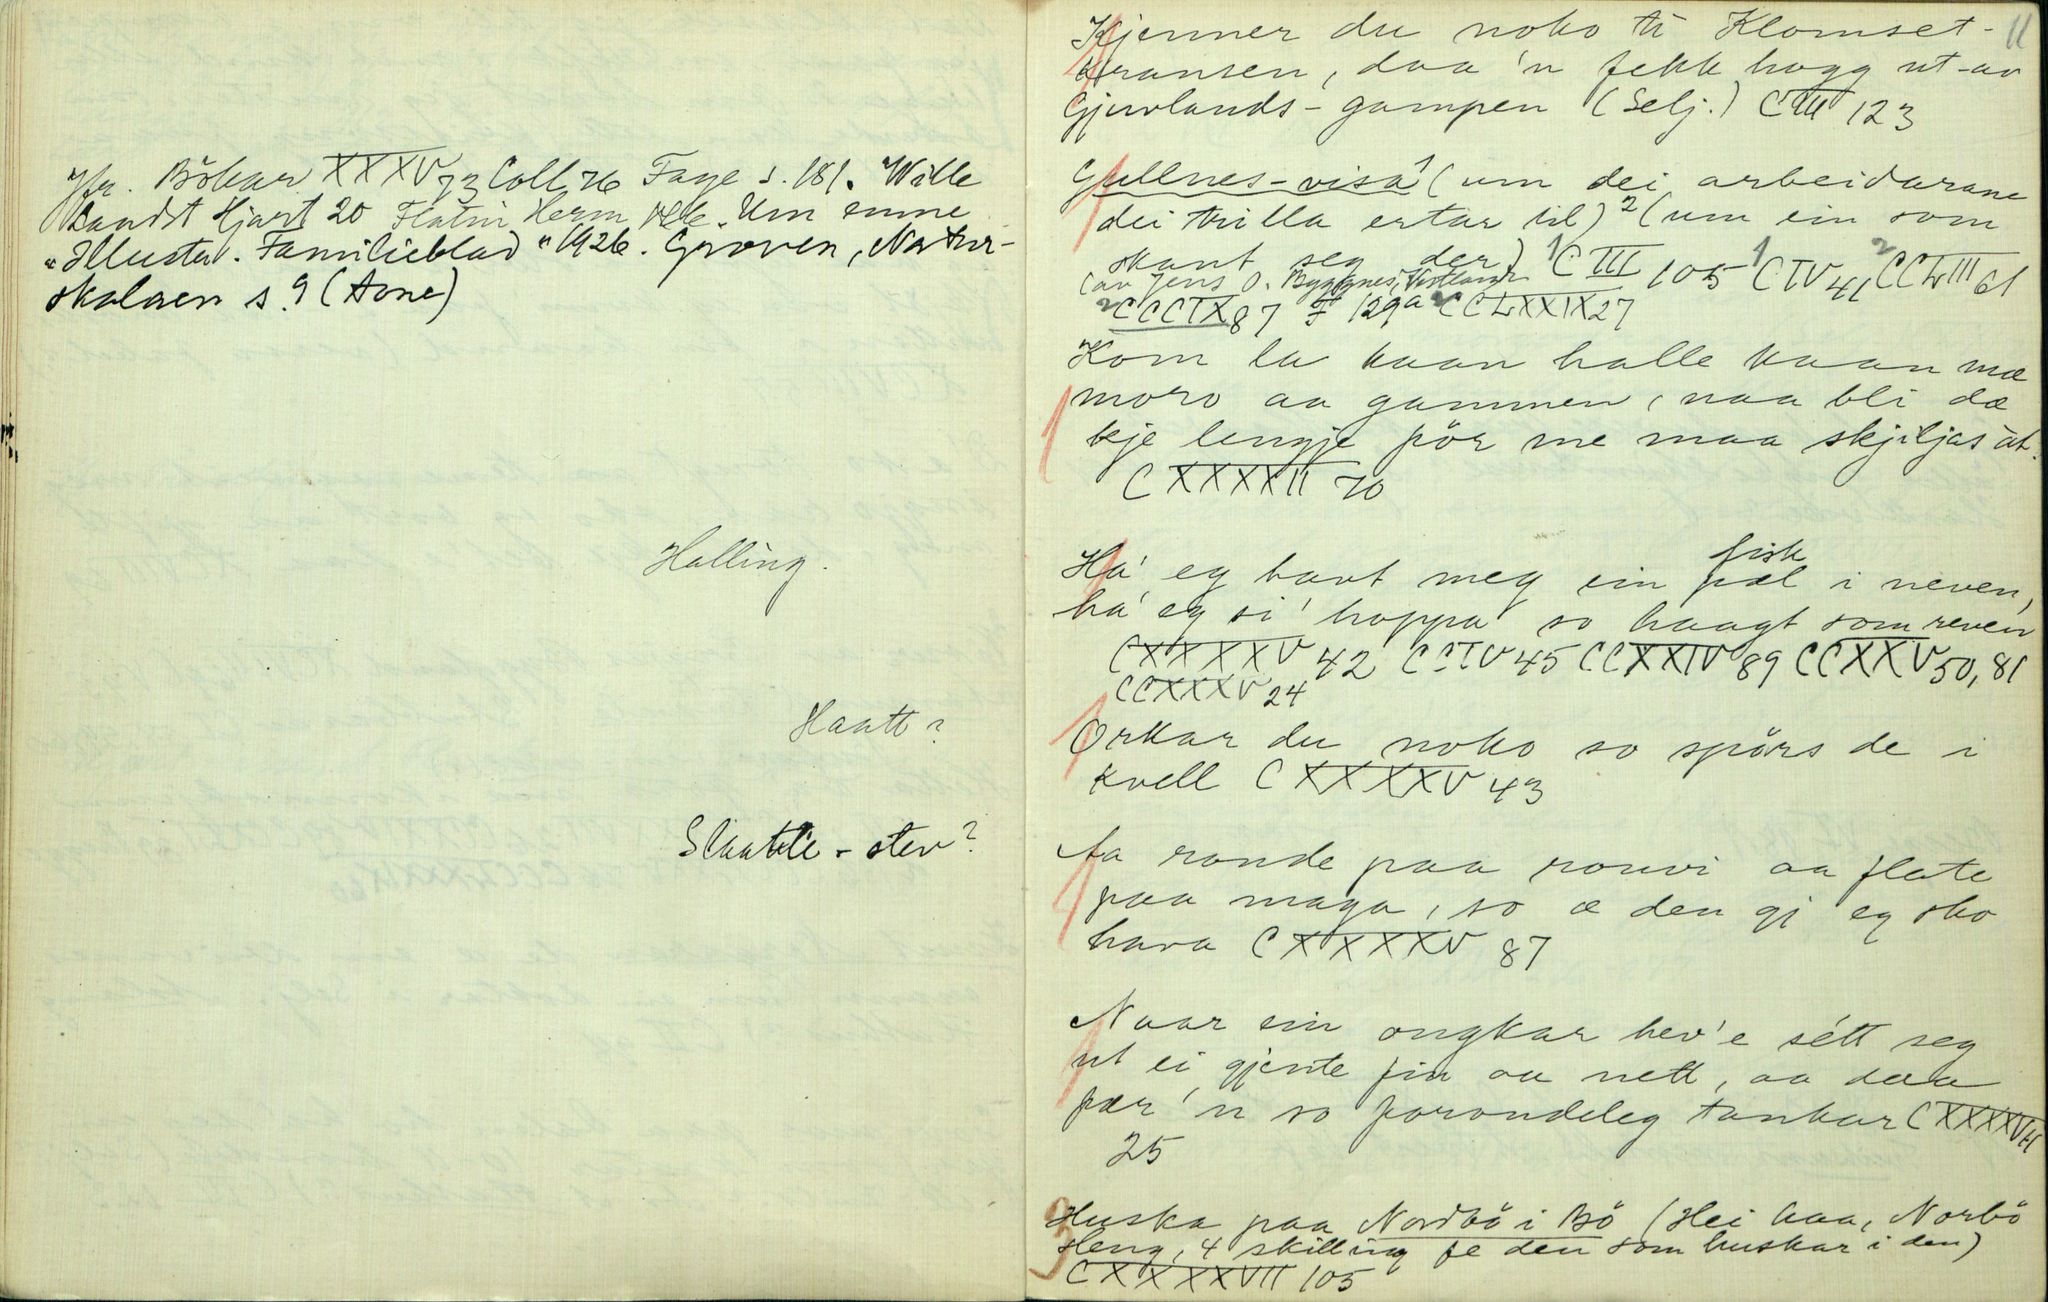 Jfr. Bökar XXXV 73 Coll 76 Faye s. 181. Wille
Landst Hjart 20 Flatin Herm Um emne
"Illustr. Familieblad" 1926. Groven, Natur-
skalaen s. 9 (Aone)
Halling.
Haatt?
Slaatte-stev?
11
Kjenner du noko ti Klomset-
transen, daa 'n fekk hogg ut-av
Gjuvlands-gampen (Selj.) CIII 123
Gullnes-visa 1 (um dei arbeidarane
dei trilla ertar til) 2 (um ein som
skaut seg der) 1 CIII 105 1 CIV 41 2 CCLIII 61
(av Jens O. Byggnes,
2 CCCIX 87 F 129a 2 CCLXXIX 27
Kom la kaan halle kaan mæ
moro aa gammen, naa bli dæ
kje lengje för me maa skjiljas åt.
CXXXXII 70
Ha' eg havt meg ein pæl i neven,
fisk
ha' eg si' hoppa so haagt som reven
CXXXXV 42 CCIV 45 CCXXIV 89 CCXXV 50, 81
CCXXXV 24
Orkar du noko so spörs de i
kvell CXXXXV 43
Aa ronde paa rouvi aa flate
paa maga, so æ den gj eg sko
hava CXXXXV 87
Naar ein ongkar hev'e sétt seg
ut ei gjente fin aa nett, aa daa
fær 'n so forondeleg tankar CXXXXVII
25
Huska paa Nordbö i Bö (Hei haa, Norbö
Heng, 4 skilling fe den som huskar i den)
CXXXXVII 105